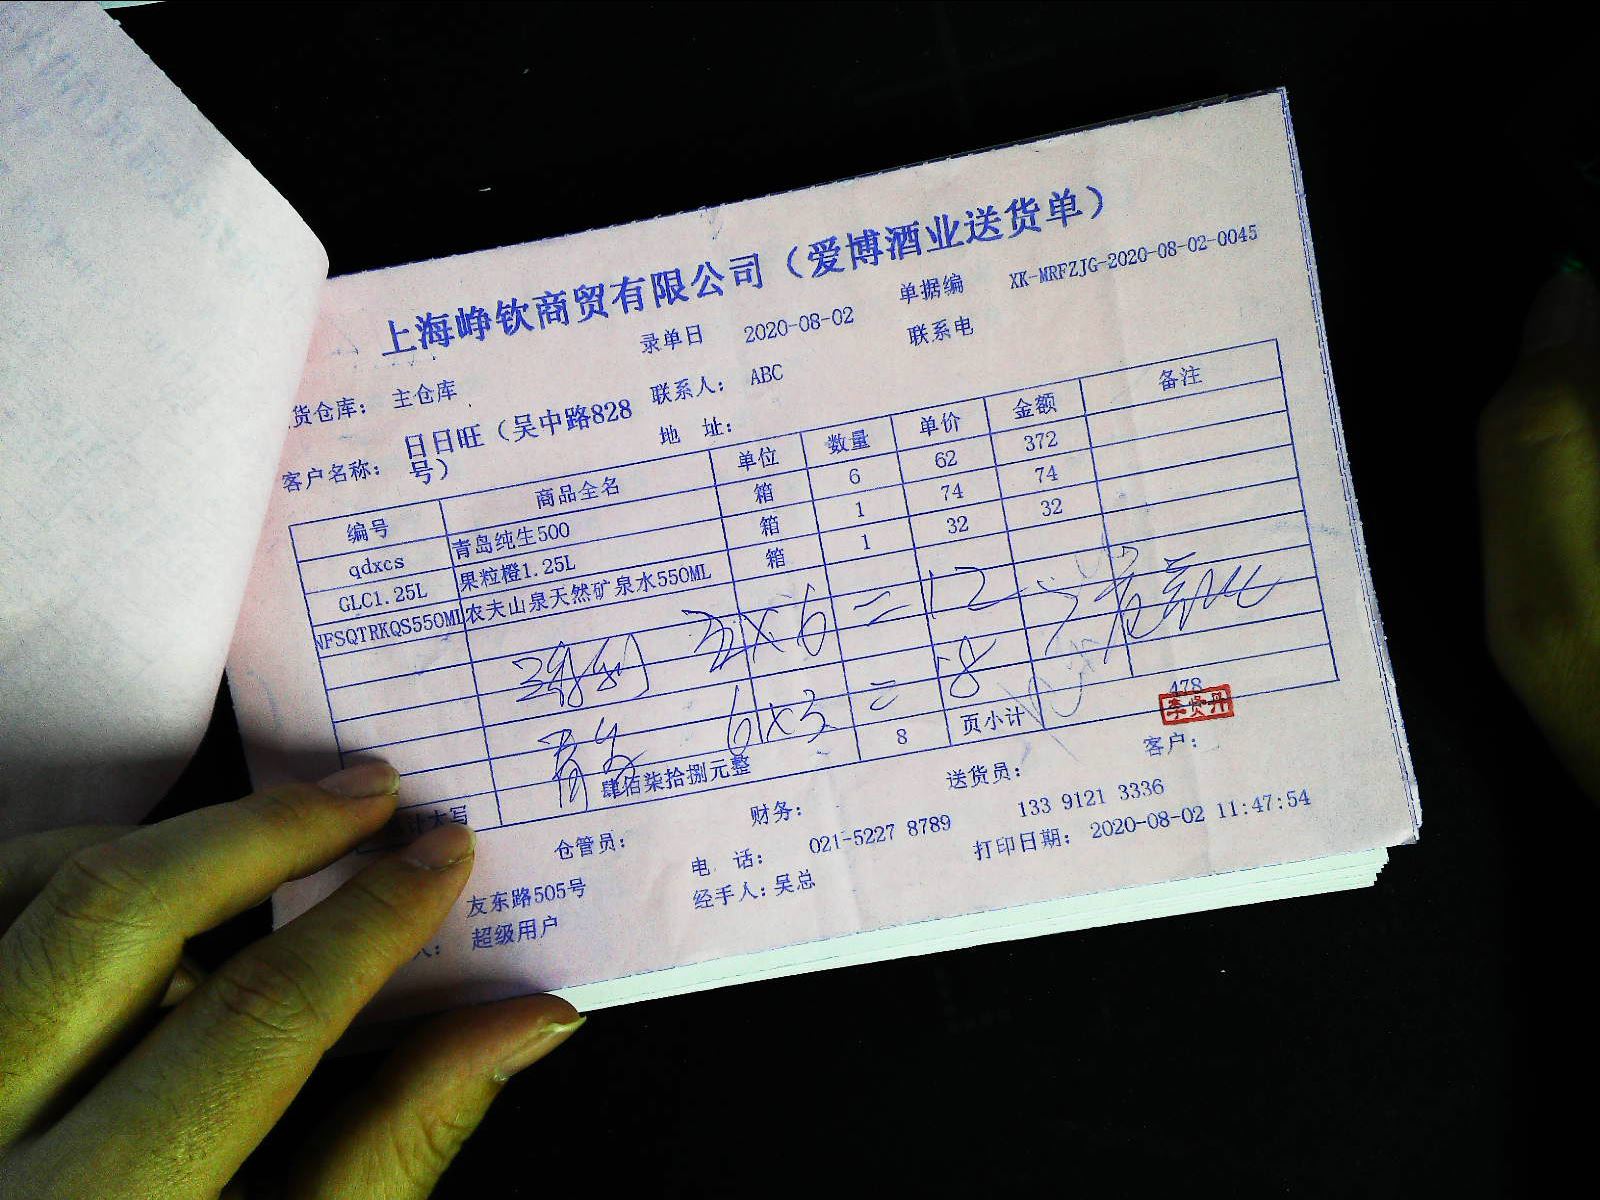 上海峥钦商贸有限公司（爱博酒业送货单）
录单日 2020-08-02 单据编 XK-MRFZJG-2020-08-02-0045
货仓库： 主仓库 联系人： ABC 联系电
客户名称： 日日旺（吴中路828号） 地 址：
编号 商品全名 单位 数量 单价 金额 备注
qdxcs 青岛纯生500 箱 6 62 372
GLC1.25L 果粒橙1.25L 箱 1 74 74
NFSQTRKQS550ML 农夫山泉天然矿泉水550ML 箱 1 32 32
2x6=12
青岛 6x3=18
计大写 肆佰柒拾捌元整 8 页小计 478
李贤丹
仓管员： 财务： 送货员： 客户：
友东路505号 电 话： 021-5227 8789 133 9121 3336
人： 超级用户 经手人：吴总 打印日期： 2020-08-02 11:47:54